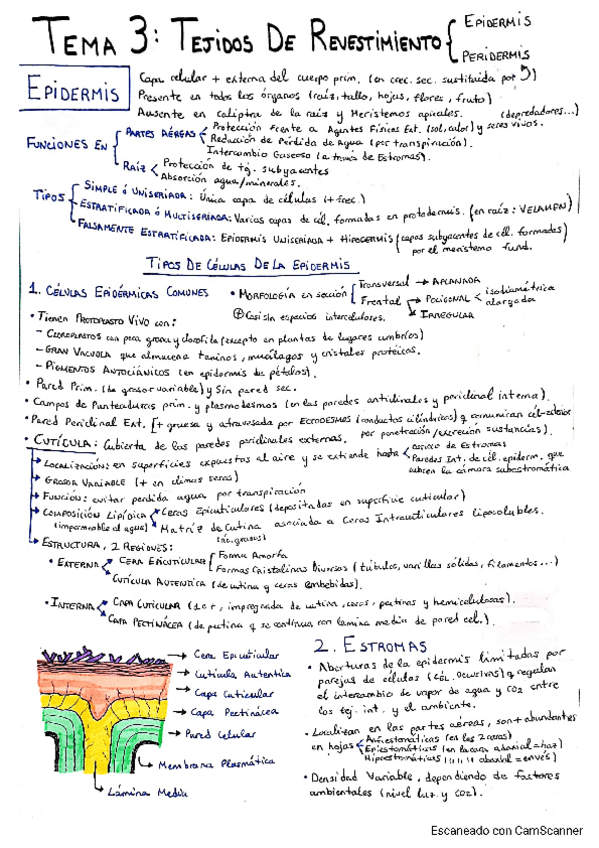 TEMA 3: TEJIDOS DE REVESTIMIENTO { EPIDERMIS
PERIDERMIS
EPIDERMIS
Capa celular + externa del cuerpo prim. (en crec. sec. sustituida por 5)
Presente en todos los órganos (raíz, tallo, hojas, flores, fruto)
Ausente en caliptra de la raíz y Meristemos apicales.
(depredadores...)
FUNCIONES EN
PARTES AÉREAS
Protección Frente a Agentes Físicos Ext. (sol, calor) y seres vivos.
Reducción de Pérdida de Agua (por transpiración).
Intercambio Gaseoso (a través de Estromas).
RAÍZ
Protección de tej. subyacentes
Absorción agua/minerales.
TIPOS
SIMPLE ó UNISERIADA: Única capa de células (+ frec.)
ESTRATIFICADA ó MULTISERIADA: Varias capas de cél. formadas en protodermis. (en raíz: VELAMEN)
FALSAMENTE ESTRATIFICADA: EPIDERMIS UNISERIADA + HIPODERMIS (capas subyacentes de cél. formadas
por el meristemo fund.
TIPOS DE CÉLULAS DE LA EPIDERMIS
1. CÉLULAS EPIDÉRMICAS COMUNES
• MORFOLOGÍA en sección
Transversal → APLANADA
Frontal
→ POLIGONAL < isodiamétrica
alargada
→ IRREGULAR
⊕ Casi sin espacios intercelulares.
• Tienen PROTOPLASTO VIVO con:
- CLOROPLASTOS con poca grana y clorofila (excepto en plantas de lugares umbríos)
- GRAN VACUOLA que almacena taninos, mucílagos y cristales proteicos.
- PIGMENTOS ANTOCIÁNICOS (en epidermis de pétalos).
• Pared Prim. (de grosor variable) y Sin pared sec.
• Campos de Punteaduras prim. y plasmodesmos (en las paredes anticlinales y periclinal interna).
• Pared Periclinal Ext. [+ gruesa y atravesada por ECTODESMOS (conductos cilíndricos) q comunican cél-exterior
por penetración/excreción sustancias).
• CUTÍCULA: Cubierta de las paredes periclinales externas.
LOCALIZACIÓN: en superficies expuestas al aire y se extiende hasta
Paredes Int. de cél. epiderm. que
cubren la cámara subestromática
GROSOR VARIABLE (+ en climas secos)
FUNCIÓN: evitar perdida agua por transpiración
COMPOSICIÓN LIPÍDICA
(impermeable al agua)
Ceras Epicuticulares (depositadas en superficie cuticular)
Matriz de Cutina asociada a Ceras Intracuticulares liposolubles.
(ác. grasos)
ESTRUCTURA, 2 REGIONES:
• EXTERNA
CERA EPICUTICULAR
Forma Amorfa
Formas Cristalinas Diversas (túbulos, varillas sólidas, filamentos...)
CUTÍCULA AUTENTICA (de cutina y ceras embebidas).
• INTERNA
CAPA CUTICULAR (impregnada de cutina, ceras, pectinas y hemicelulosas).
CAPA PECTINÁCEA (de pectina q se continúa con lámina media de pared cel.).
→ Cera Epicuticular
→ Cutícula Autentica
→ Capa Cuticular
→ Capa Pectinácea
→ Pared Celular
→ Membrana Plasmática
→ Lámina Media
2. ESTROMAS
• Aberturas de la epidermis limitadas por
parejas de células (cél. Oclusivas) q regulan
el intercambio de vapor de agua y CO2 entre
los tej. int. y el ambiente.
• Localizan en las partes aéreas, son + abundantes
en hojas
Anfiestomáticas (en las 2 caras)
Epiestomáticas (en la cara adaxial = haz)
Hipoestomáticas (" " " abaxial = envés)
• Densidad Variable, dependiendo de factores
ambientales (nivel luz y CO2).
Escaneado con CamScanner